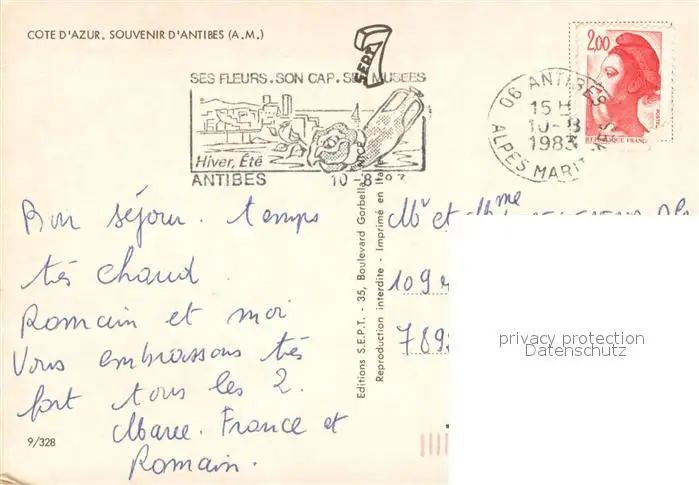 COTE D'AZUR. SOUVENIR D'ANTIBES (A.M.)
SEPT
SES FLEURS. SON CAP. SES MUSEES
Hiver, Été
ANTIBES
10-8
06 ANTIBES
15 H
10-8
1983
ALPES MARIT
2,00
REPUBLIQUE FRANC
Bon séjour. temps
très chaud.
Romain et moi
Vous embrassons très
fort tous les 2.
Marie. France et
Romain.
9/328
Editions S.E.P.T. - 35, Boulevard Gorbella
Reproduction interdite - Imprimé en Italie
Mr et Mme
109
789
privacy protection
Datenschutz